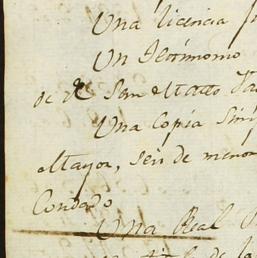 Una licencia
Un Testimonio
de San Matteo
Una Copia Sim
Mayor, seu de menor
Condado
Una Real